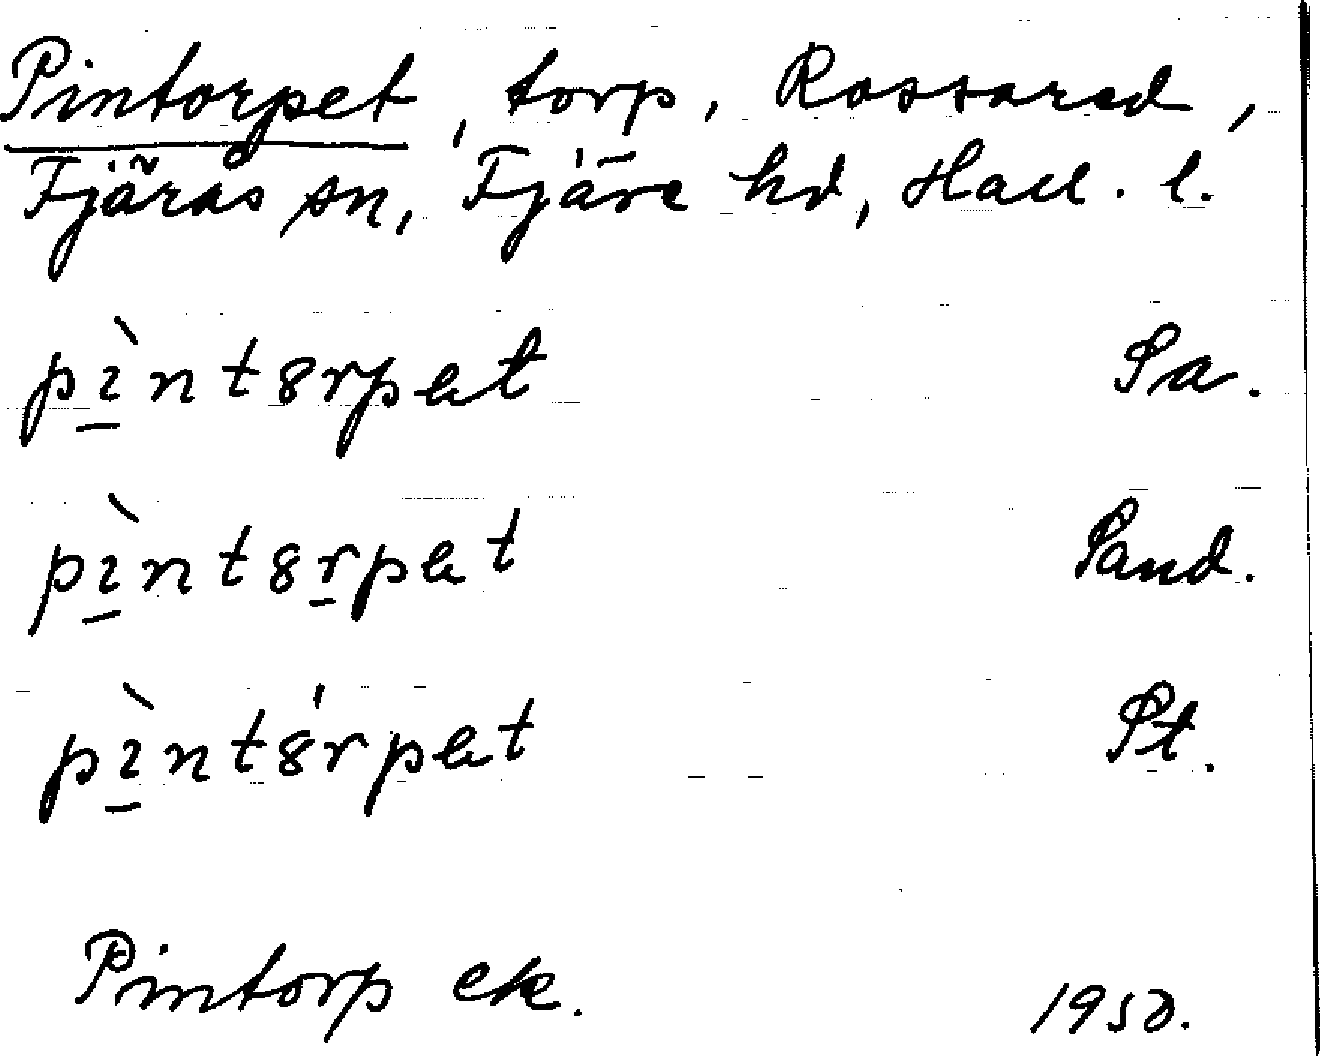 Pintorpet, torp, Rossared,
Fjärås sn, Fjäre hd, Hall. l.
pı̱̀nt8rpet Sa.
pı̱̀nt8ṟpet Sand.
pı̱̀nt8́rpet Pt.
Pintorp ek. 1950.